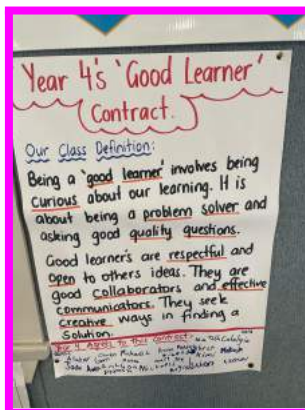 Year 4's 'Good Learner'
Contract.
Our Class Definition:
Being a 'good learner' involves being
curious about our learning. It is
about being a problem solver and
asking good quality questions.
Good learner's are respectful and
open to others ideas. They are
good collaborators and effective
communicators. They seek
creative ways in finding a
solution.
Year 4 Agrees to this Contract: